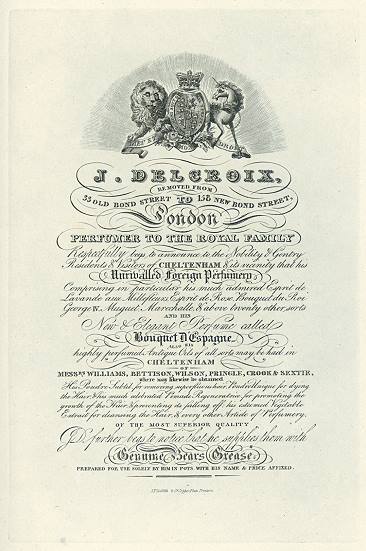 DIEU ET MON DROIT
J. DELCROIX,
REMOVED FROM
33 OLD BOND STREET TO 158 NEW BOND STREET,
London
PERFUMER TO THE ROYAL FAMILY
Respectfully begs to announce to the Nobility & Gentry
Residents & Visitors of CHELTENHAM & its vicinity that his
Unrivalled Foreign Perfumery
Comprising in particular his much admired Esprit de
Lavande aux Millefleurs, Esprit de Rose, Bouquet du Roi
George IV, Muguet, Marechalle, & above twenty other sorts
AND HIS
New & Elegant Perfume called
Bouquet D'Espagne,
ALSO HIS
highly perfumed Antique Oils of all sorts may be had in
CHELTENHAM
OF
MESSRS WILLIAMS, BETTISON, WILSON, PRINGLE, CROOK & SENTIE,
where may likewise be obtained
His Poudre Subtil for removing superfluous hair, Pond
for dyeing
the Hair & his much celebrated Pomade Regenerative for promoting the
growth of the Hair & preventing its falling off; his esteemed Vegetable
Extract for cleansing the Hair, & every other Article of Perfumery,
OF THE MOST SUPERIOR QUALITY
J.D. further begs to notice that he supplies them with
Genuine Bears Grease,
PREPARED FOR USE SOLELY BY HIM IN POTS, WITH HIS NAME & PRICE AFFIXED.